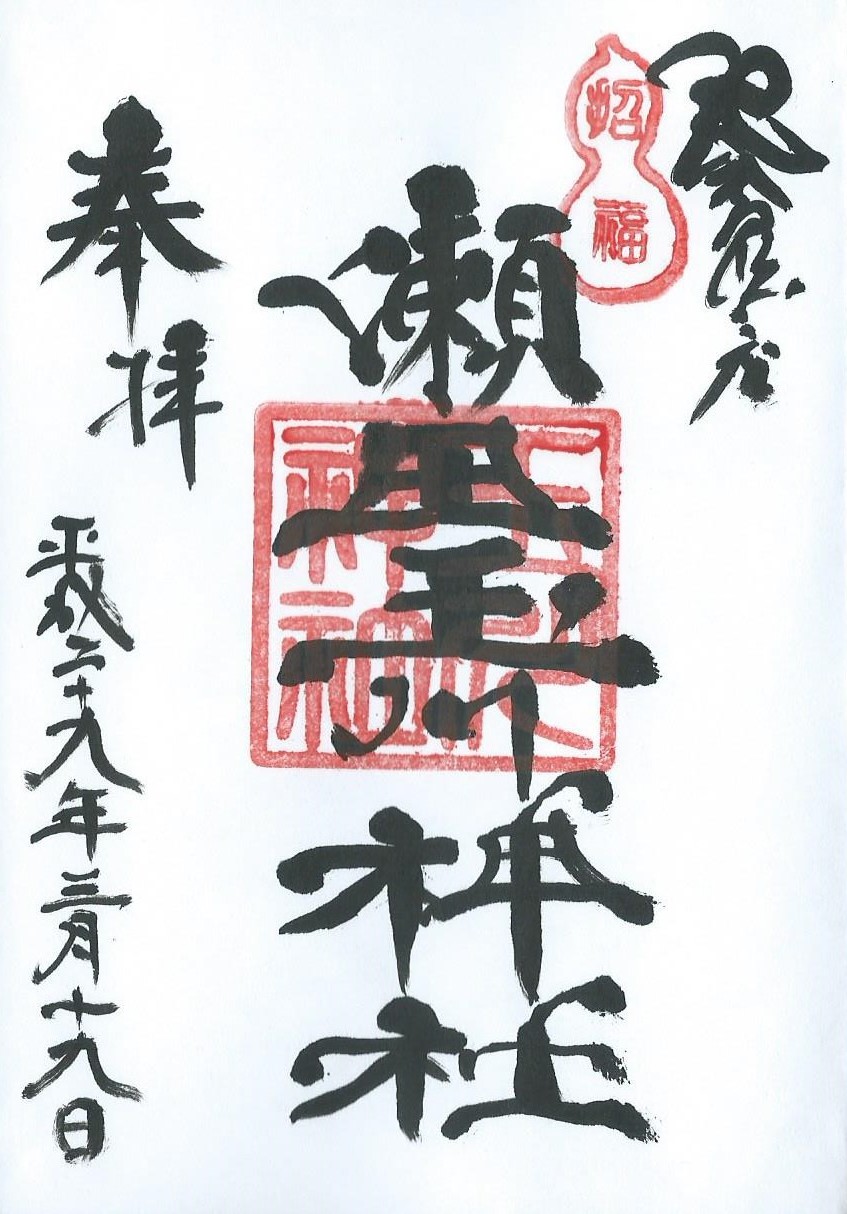 招福
瀬田玉川神社
奉拝
平成二十九年三月十九日